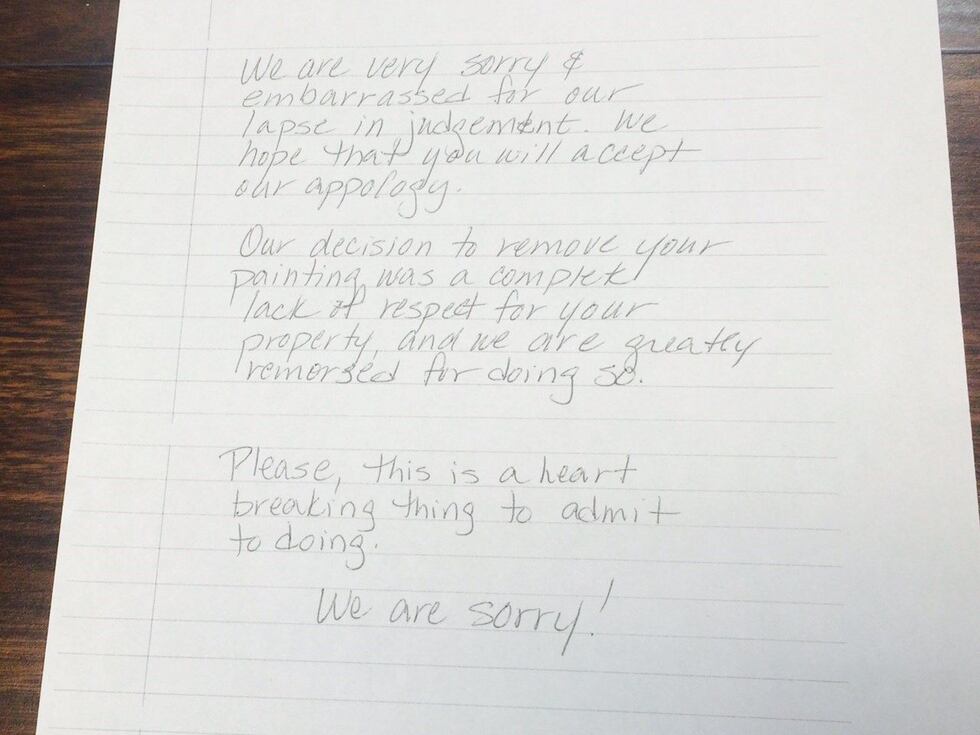 We are very sorry &
embarrassed for our
lapse in judgement. We
hope that you will accept
our appology.
Our decision to remove your
painting was a complete
lack of respect for your
property, and we are greatly
remorsed for doing so.
Please, this is a heart
breaking thing to admit
to doing.
We are sorry!